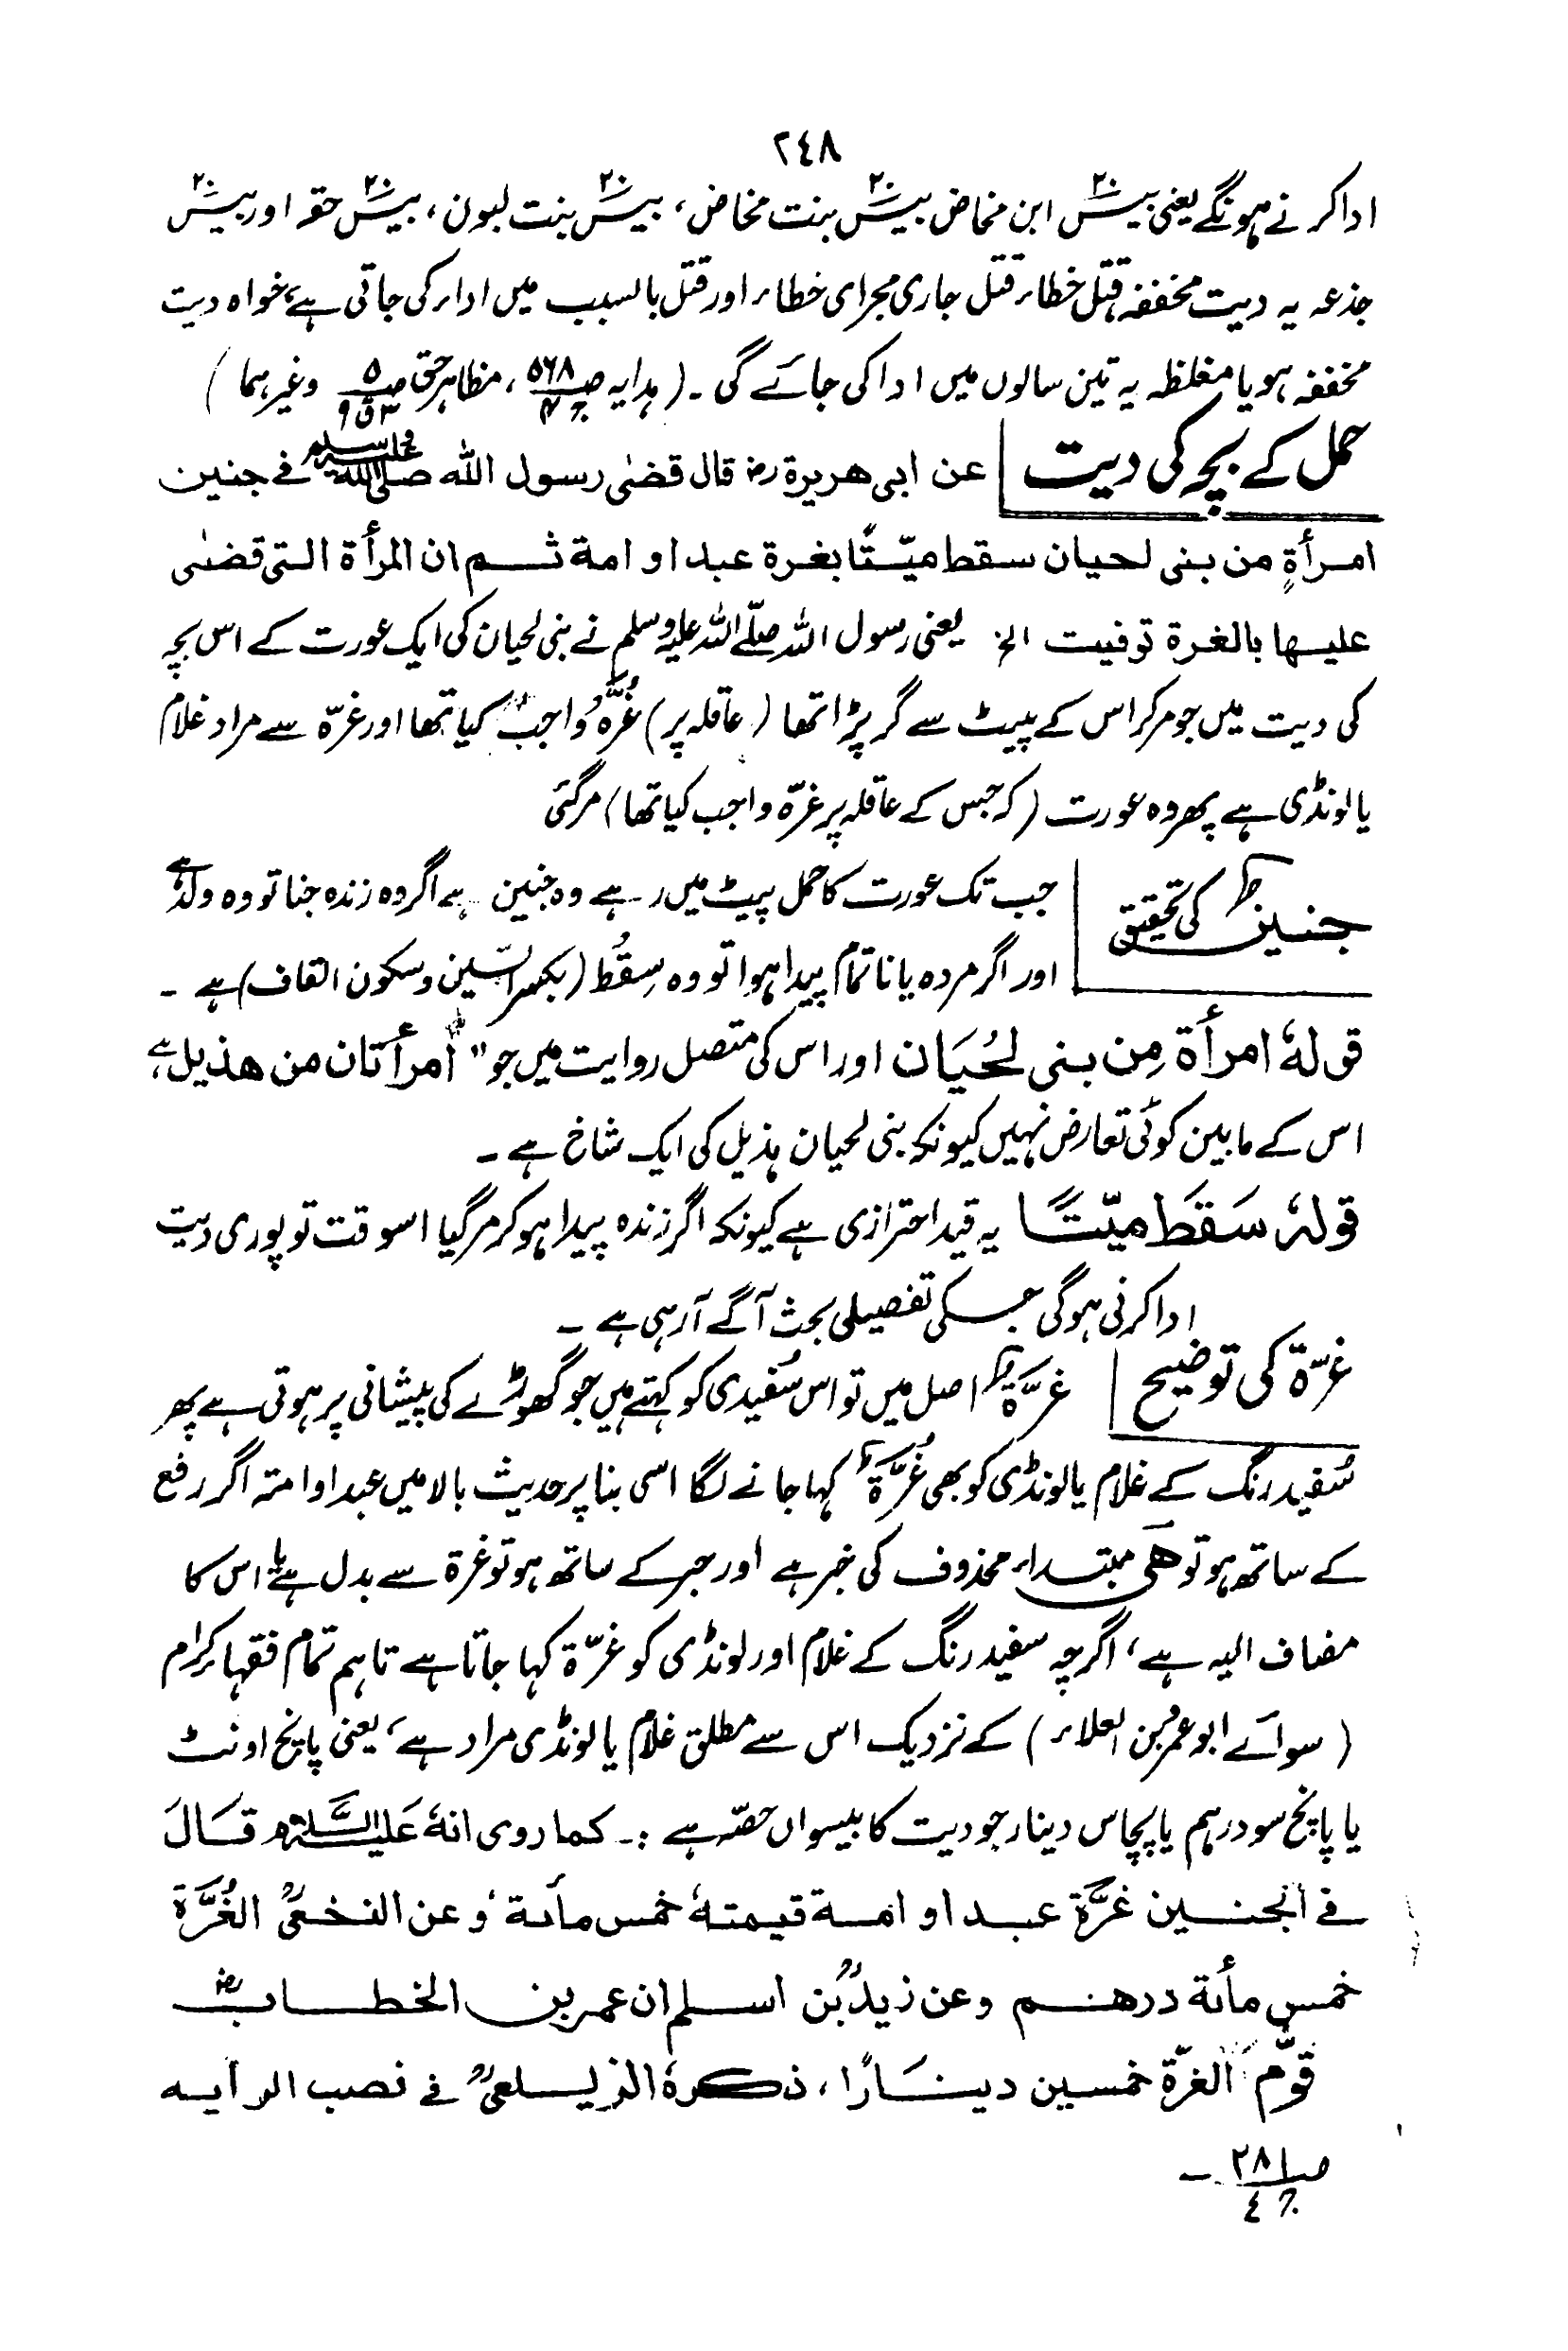 ٢٤٨
ادا کرنے ہونگے یعنی بیس ۲۰ ابن مخاض بیس ۲۰ بنت مخاض، بیس ۲۰ بنت لبون، بیس ۲۰ حقہ اور بیس ۲۰
جذعہ یہ دیت مخففہ قتل خطاء، قتل جاری مجرای خطاء اور قتل بالسبب میں اداء کی جاتی ہے، خواہ دیت
مخففہ ہو یا مغلظہ یہ تین سالوں میں ادا کی جائے گی ۔ (ہدایہ ص۵۶۸، مظاہر حق ص وغیرہما)
حمل کے بچہ کی دیت عن ابی هریرة رض قال قضٰی رسول الله صلی اللہ علیہ وسلم فے جنین
امرأةٍ من بنی لحیان سقط میّتًا بغرة عبد او امة ثم ان المرأة التی قضٰی
علیها بالغرة توفیت الخ یعنی رسول اللہ صلّے اللہ علیہ وسلم نے بنی لحیان کی ایک عورت کے اس بچہ
کی دیت میں جو مرکر اس کے پیٹ سے گر پڑا تھا (عاقلہ پر) غُرَّہ واجب کیا تھا اور غرّہ سے مراد غلام
یا لونڈی ہے پھر وہ عورت (کہ جس کے عاقلہ پر غرّہ واجب کیا تھا) مرگئی
جنین کی تحقیق جب تک عورت کا حمل پیٹ میں رہے وہ جنین ہے اگر وہ زندہ جنا تو وہ ولد ہے
اور اگر مردہ یا ناتمام پیدا ہوا تو وہ سِقُط (بکسر السّین وسکون القاف) ہے ۔
قولهٗ امرأة مِن بنی لحُیَان اور اس کی متصل روایت میں جو "امرأتان من هذیل ہے
اس کے مابین کوئی تعارض نہیں کیونکہ بنی لحیان ہذیل کی ایک شاخ ہے ۔
قولهٗ سَقَطَ میّتًا یہ قید احترازی ہے کیونکہ اگر زندہ پیدا ہوکر مرگیا اسوقت تو پوری دیت
ادا کرنی ہوگی جسکی تفصیلی بحث آگے آرہی ہے ۔
غرّة کی توضیح غرَّة اصل میں تو اس سُفیدی کو کہتے ہیں جو گھوڑے کی پیشانی پر ہوتی ہے پھر
سُفید رنگ کے غلام یا لونڈی کو بھی غُرَّة کہا جانے لگا اسی بنا پر حدیث بالا میں عبد او امتہ اگر رفع
کے ساتھ ہو تو هی مبتداء محذوف کی خبر ہے اور جر کے ساتھ ہو تو غرة سے بدل ہے یا اس کا
مضاف الیہ ہے، اگرچہ سفید رنگ کے غلام اور لونڈی کو غرّة کہا جاتا ہے تاہم تمام فقہاء کرام
(سوائے ابو عمرو بن العلاء) کے نزدیک اس سے مطلق غلام یا لونڈی مراد ہے، یعنی پانچ اونٹ
یا پانچ سو درہم یا پچاس دینار جو دیت کا بیسواں حصّہ ہے :۔ کما روی انهٗ عَلیہ السَّلام قَالَ
فے الجنین غرَّة عبد او امة قیمتهٗ خمس مأىة، وعن النخعیؒ الغُرَّة
خمس مأىة درهم وعن زیدؒ بن اسلم ان عمر بن الخطاب رض
قوّم الغرّة خمسین دینَارًا، ذكرهٗ الزیلعیؒ فے نصب الرأیه
ص۲۸۱ ج۴ ۔